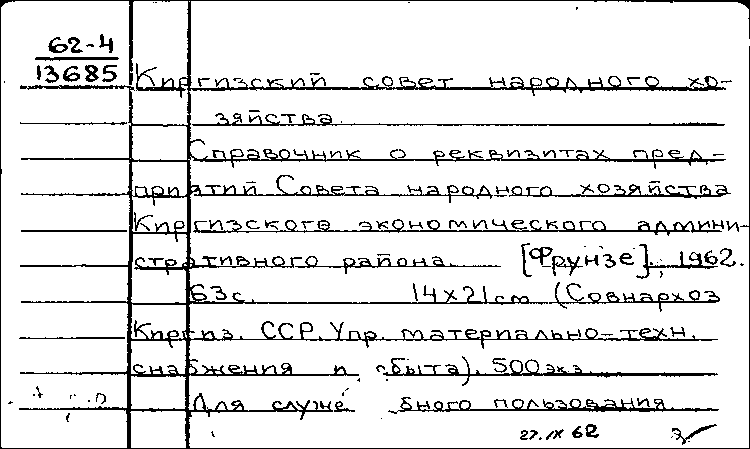 62-4
13685
Киргизский совет народного хо-
зяйства.
Справочник о реквизитах пред-
приятий Совета народного хозяйства
Киргизского экономического админи-
стративного района. [Фрунзе], 1962.
63с. 14x21см (Совнархоз
Киргиз. ССР. Упр. материально-техн.
снабжения и сбыта). 500экз.
Для служебного пользования.
27.IX 62